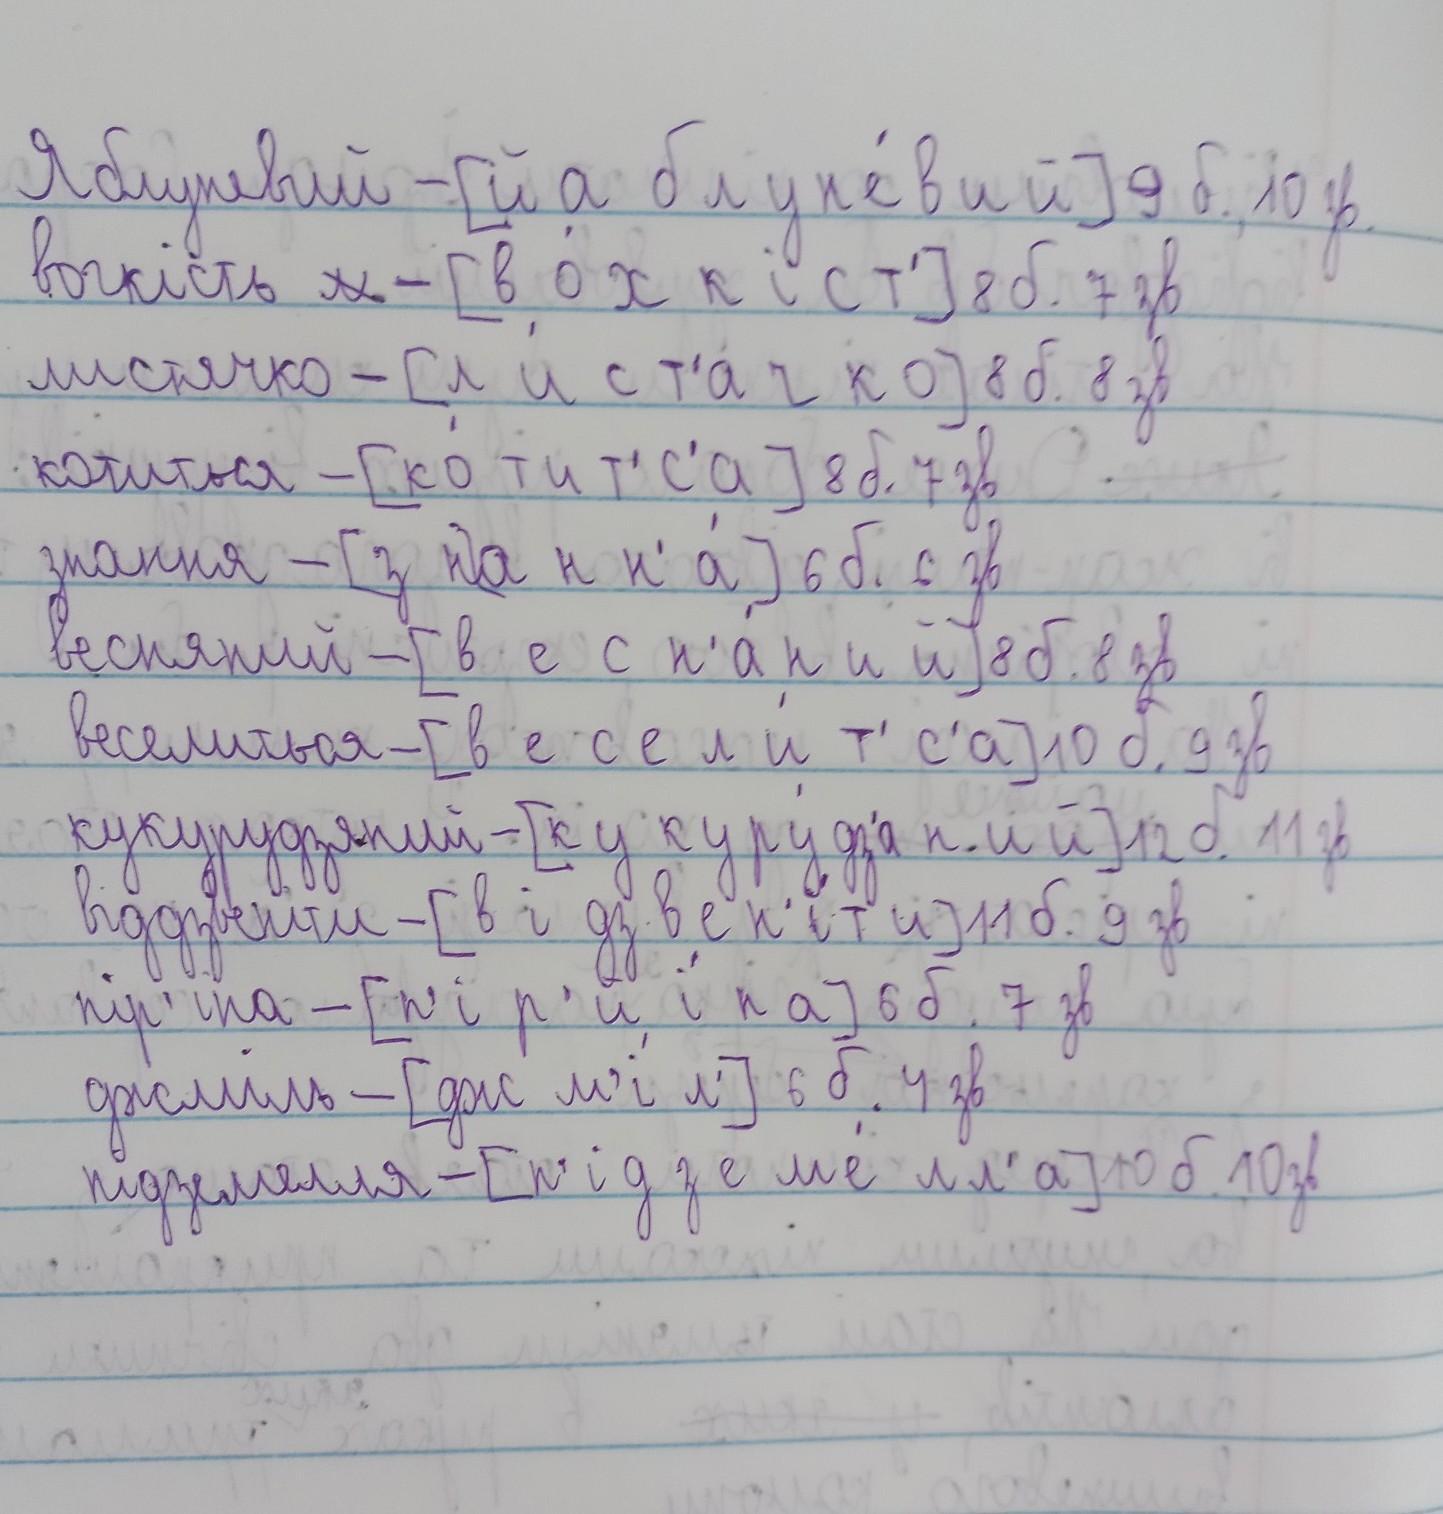 Яблуневий – [й а б л у н е́ в и й] 9 б. 10 зв.
вогкість – [в о́ х к і с т'] 8 б. 7 зв
листячко – [л и́ с т' а ч к о] 8 б. 8 зв
котиться – [к о́ т и т' с' а] 8 б. 7 зв
знання – [з н а н н' а́] 6 б. 6 зв
весняний – [в е с н' а́ н и й] 8 б. 8 зв
веселиться – [в е с е л и́ т' с' а] 10 б. 9 зв
кукурудзяний – [к у к у р у́ дз' а н и й] 12 б. 11 зв
віддзвеніти – [в і дз в е н' і́ т и] 11 б. 9 зв
пір'їна – [п' і р' й і́ н а] 6 б. 7 зв
джміль – [дж м' і́ л'] 6 б. 4 зв
підземелля – [п' і д з е м е́ л л' а] 10 б. 10 зв